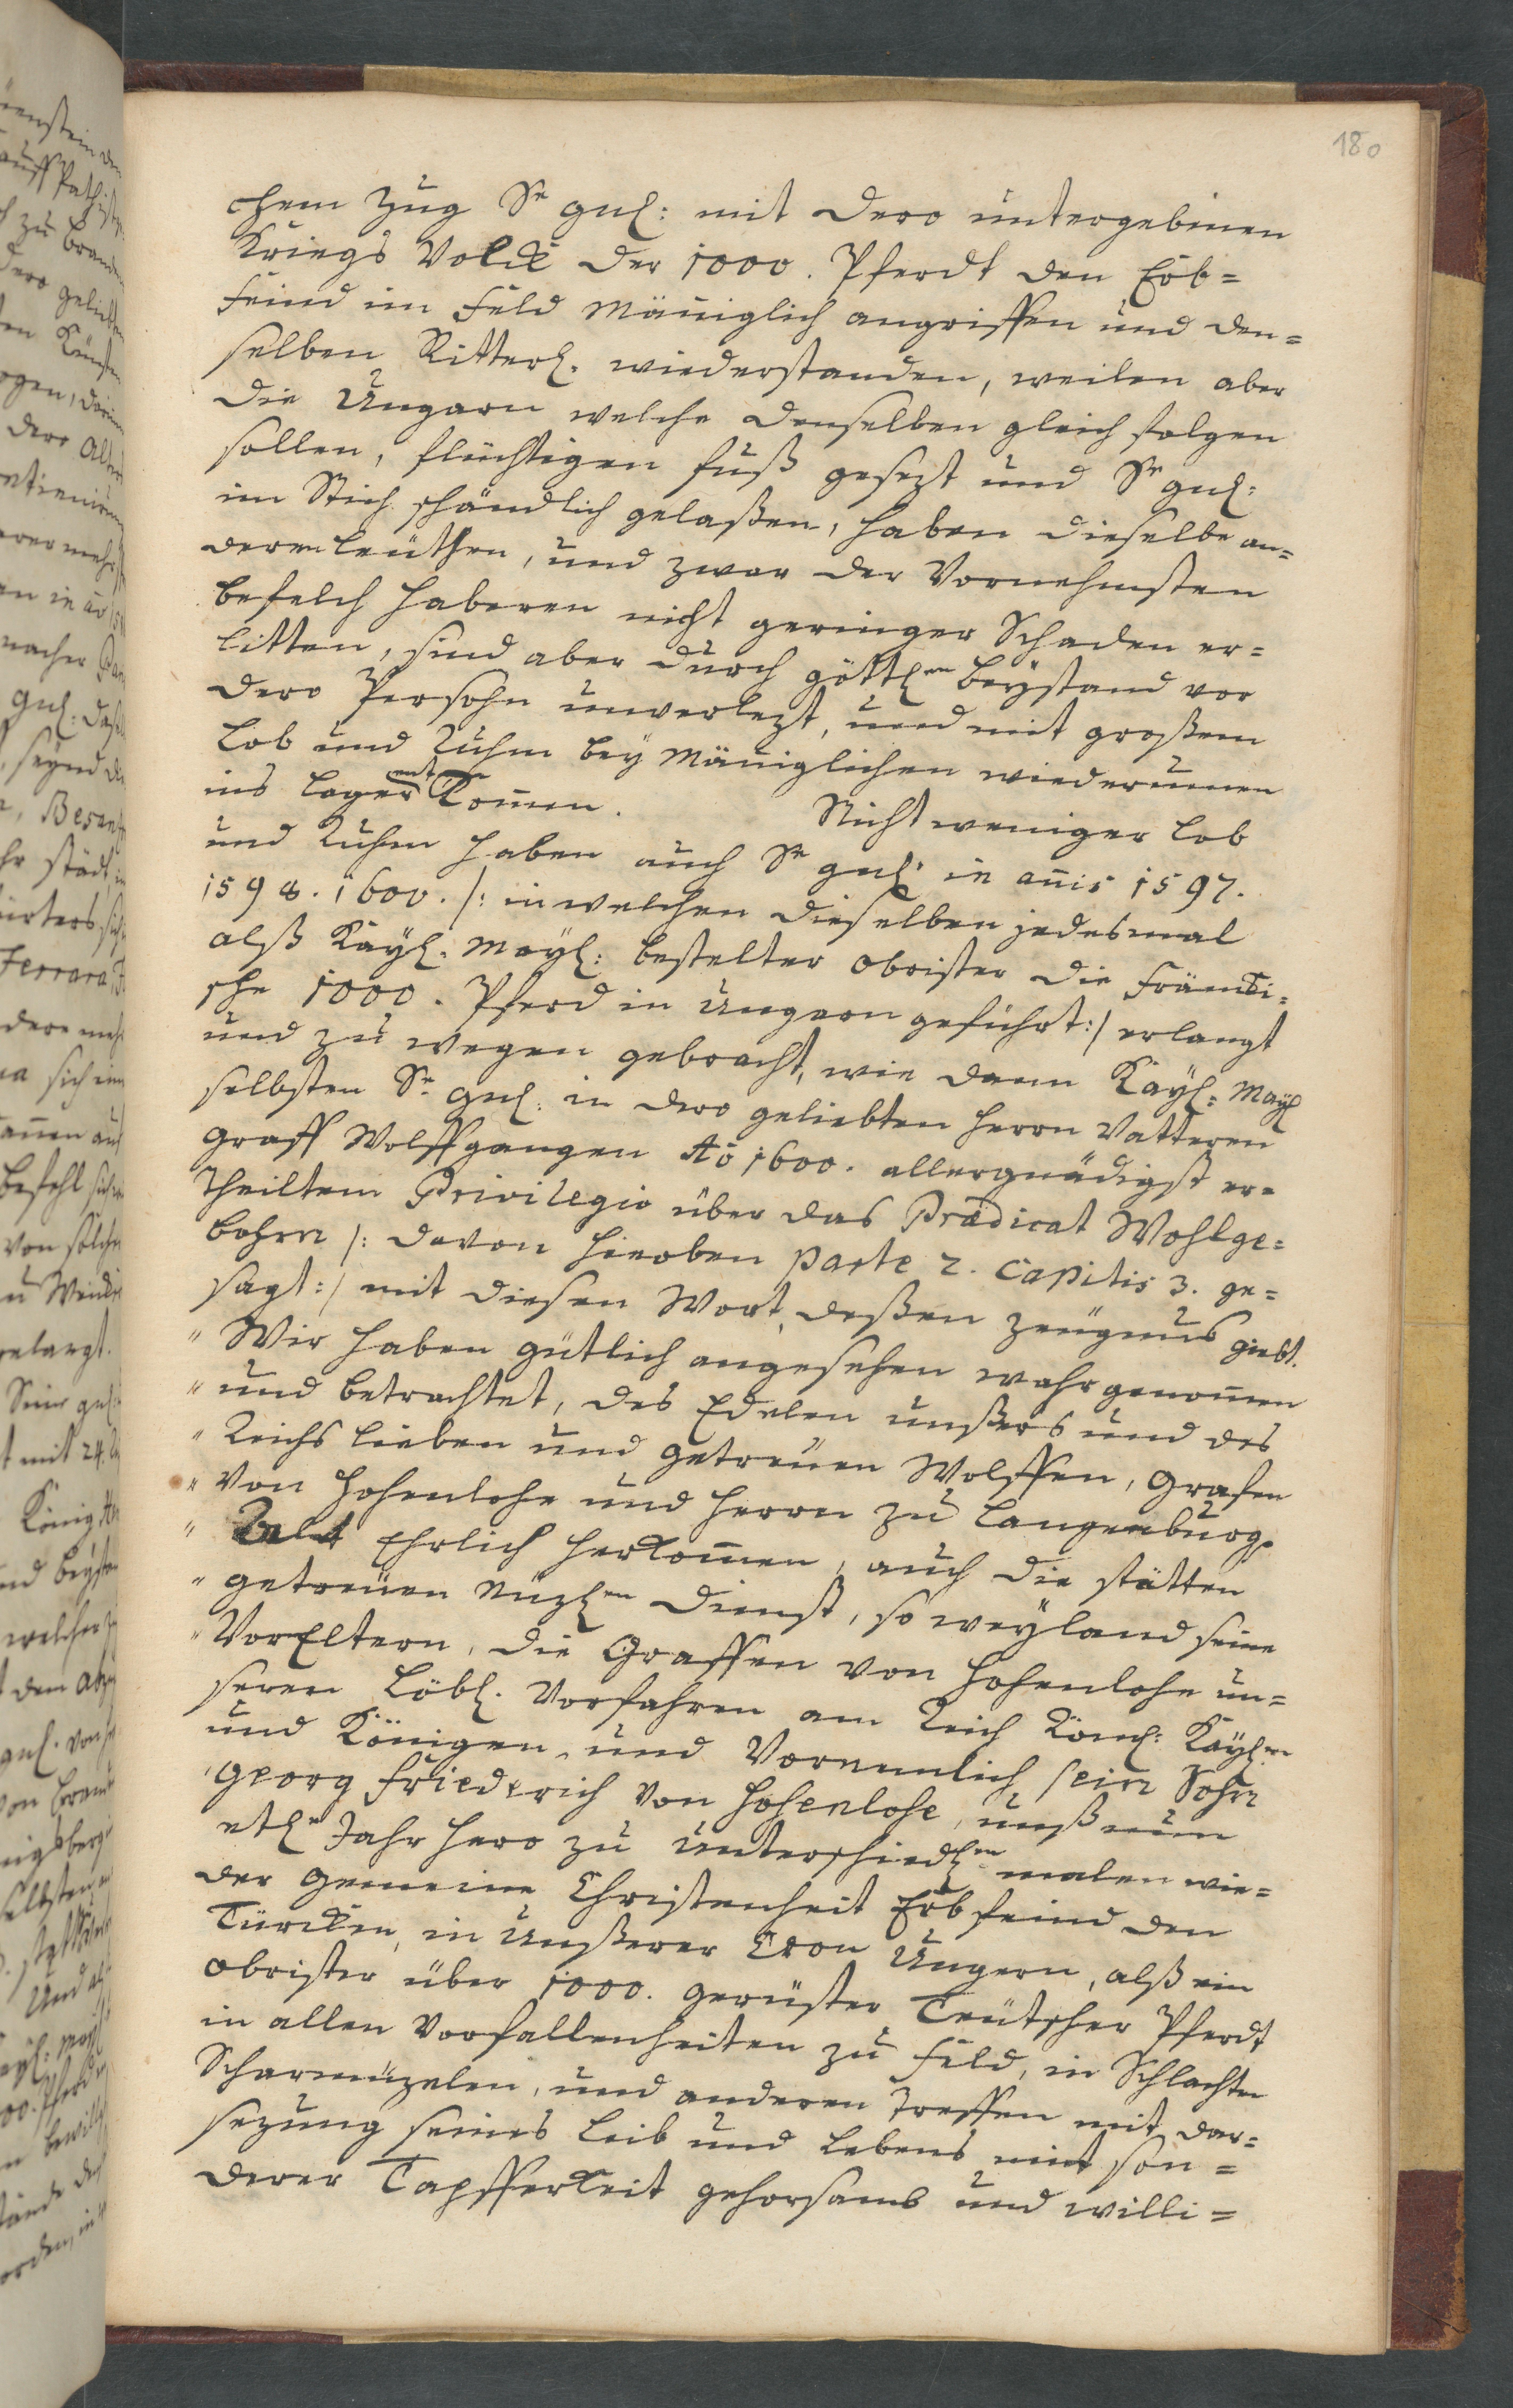 180
chem Zug Sr gnl: mit dero untergebenen
Kriegs Volck der 1000. Pferdt den Erb=
feind im Feld mäniglich angriffen und den=
selben Ritterl. wiederstanden, weilen aber
die Ungarn welche denselben gleich folgen
sollen, flüchtigen fuß gesezt und Sr gnl:
im Stich schändlich gelaßen, haben dieselbe an=
deren leüthen, und zwar der Vornehmsten
befelch haberen nicht geringer Schaden er=
litten, sind aber durch göttlen beystand vor
dero Persohn unverlezt, und mit großem
Lob und Ruhm bey mäniglichen wiederumen
ins Lager kommen. Nicht weniger Lob
und Ruhm haben auch Sr gnl: in anis 1597.
1598. 1600. /: in welchen dieselben jedesmal
alß Kayl. Mayl: bestelter Obrister die Fränki=
sche 1000. Pferd in Ungarn geführt :/ erlangt
und zu wegen gebracht, wie dann Kayl. Mayl
selbsten Sr gnl: in dero geliebten Herrn Vatteren
Graff Wolffgangen Ao 1600. allergnädigst er=
theiltem Privilegio über das Prædicat Wohlge=
bohrn /: davon hieoben parte 2. Capitis 3. ge=
sagt :/ mit diesen Wort, deßen zeügnus giebt.
" Wir haben gütlich angesehen wahrgenommen
" und betrachtet, des Edelen unßers und des
" Reichs lieben und getreüen Wolffen, Grafen
" von Hohenlohe und Herrn zu Langenburg.
" Ehrlich herkommen, auch die stätten
" getreüen nüzlen Dienst, so weyland seine
" VorEltern, die Graffen von Hohenlohe un=
seren Löbl. Vorfahren am Reich Röml: Kaylen
und Königen, und Vornemlich sein Sohn
Georg Friederich von Hohenlohe, unß nun
etlr Jahr hero zu unterschiedlen malen wie=
der gemeine Christenheit Erbfeind den
Türcken, in Unßerer Cron Ungern, alß ein
Obrister über 1000. gerüster Teütscher Pferdt
in allen Vorfallenheiten zu Feld, in Schlachten
Scharmüzelen, und anderen Treffen mit dar=
sezung seines Leib und Lebens mit son=
derer Tapfferkeit gehorsamb und willi=